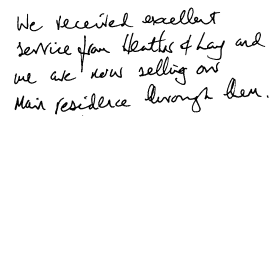 We received excellent
service from Heather & Lay and
we are now selling our
main residence through them.